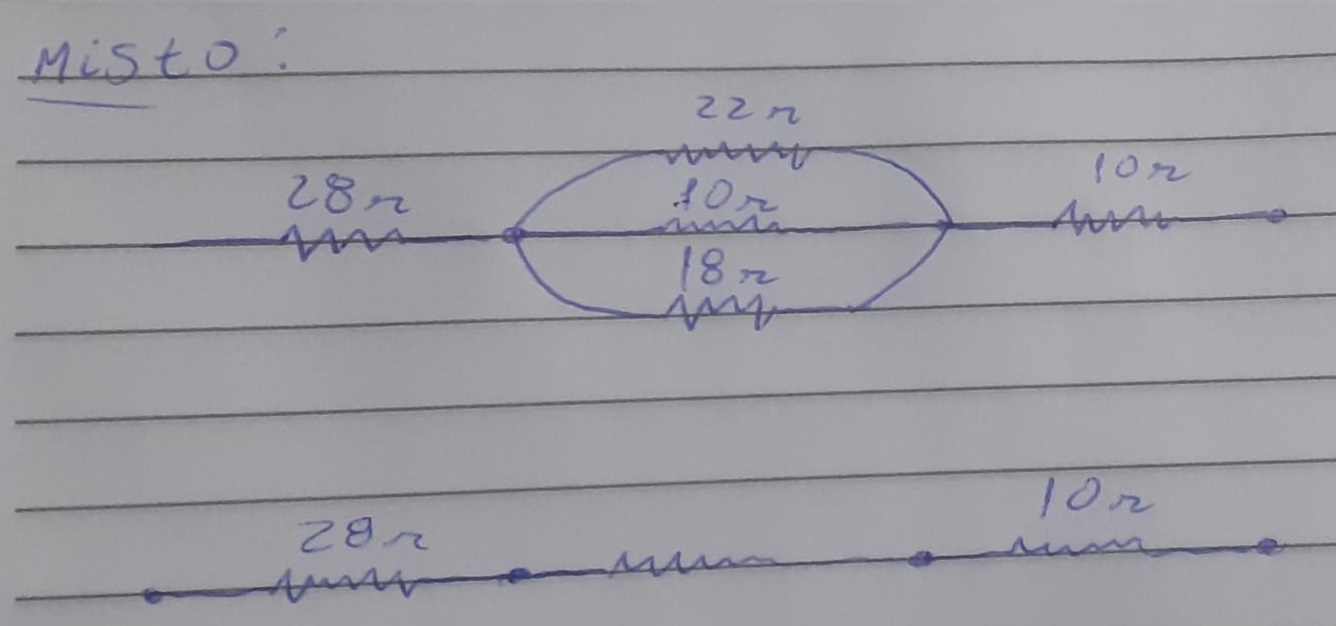 Misto:
22 Ω
28 Ω
10 Ω
10 Ω
18 Ω
10 Ω
28 Ω